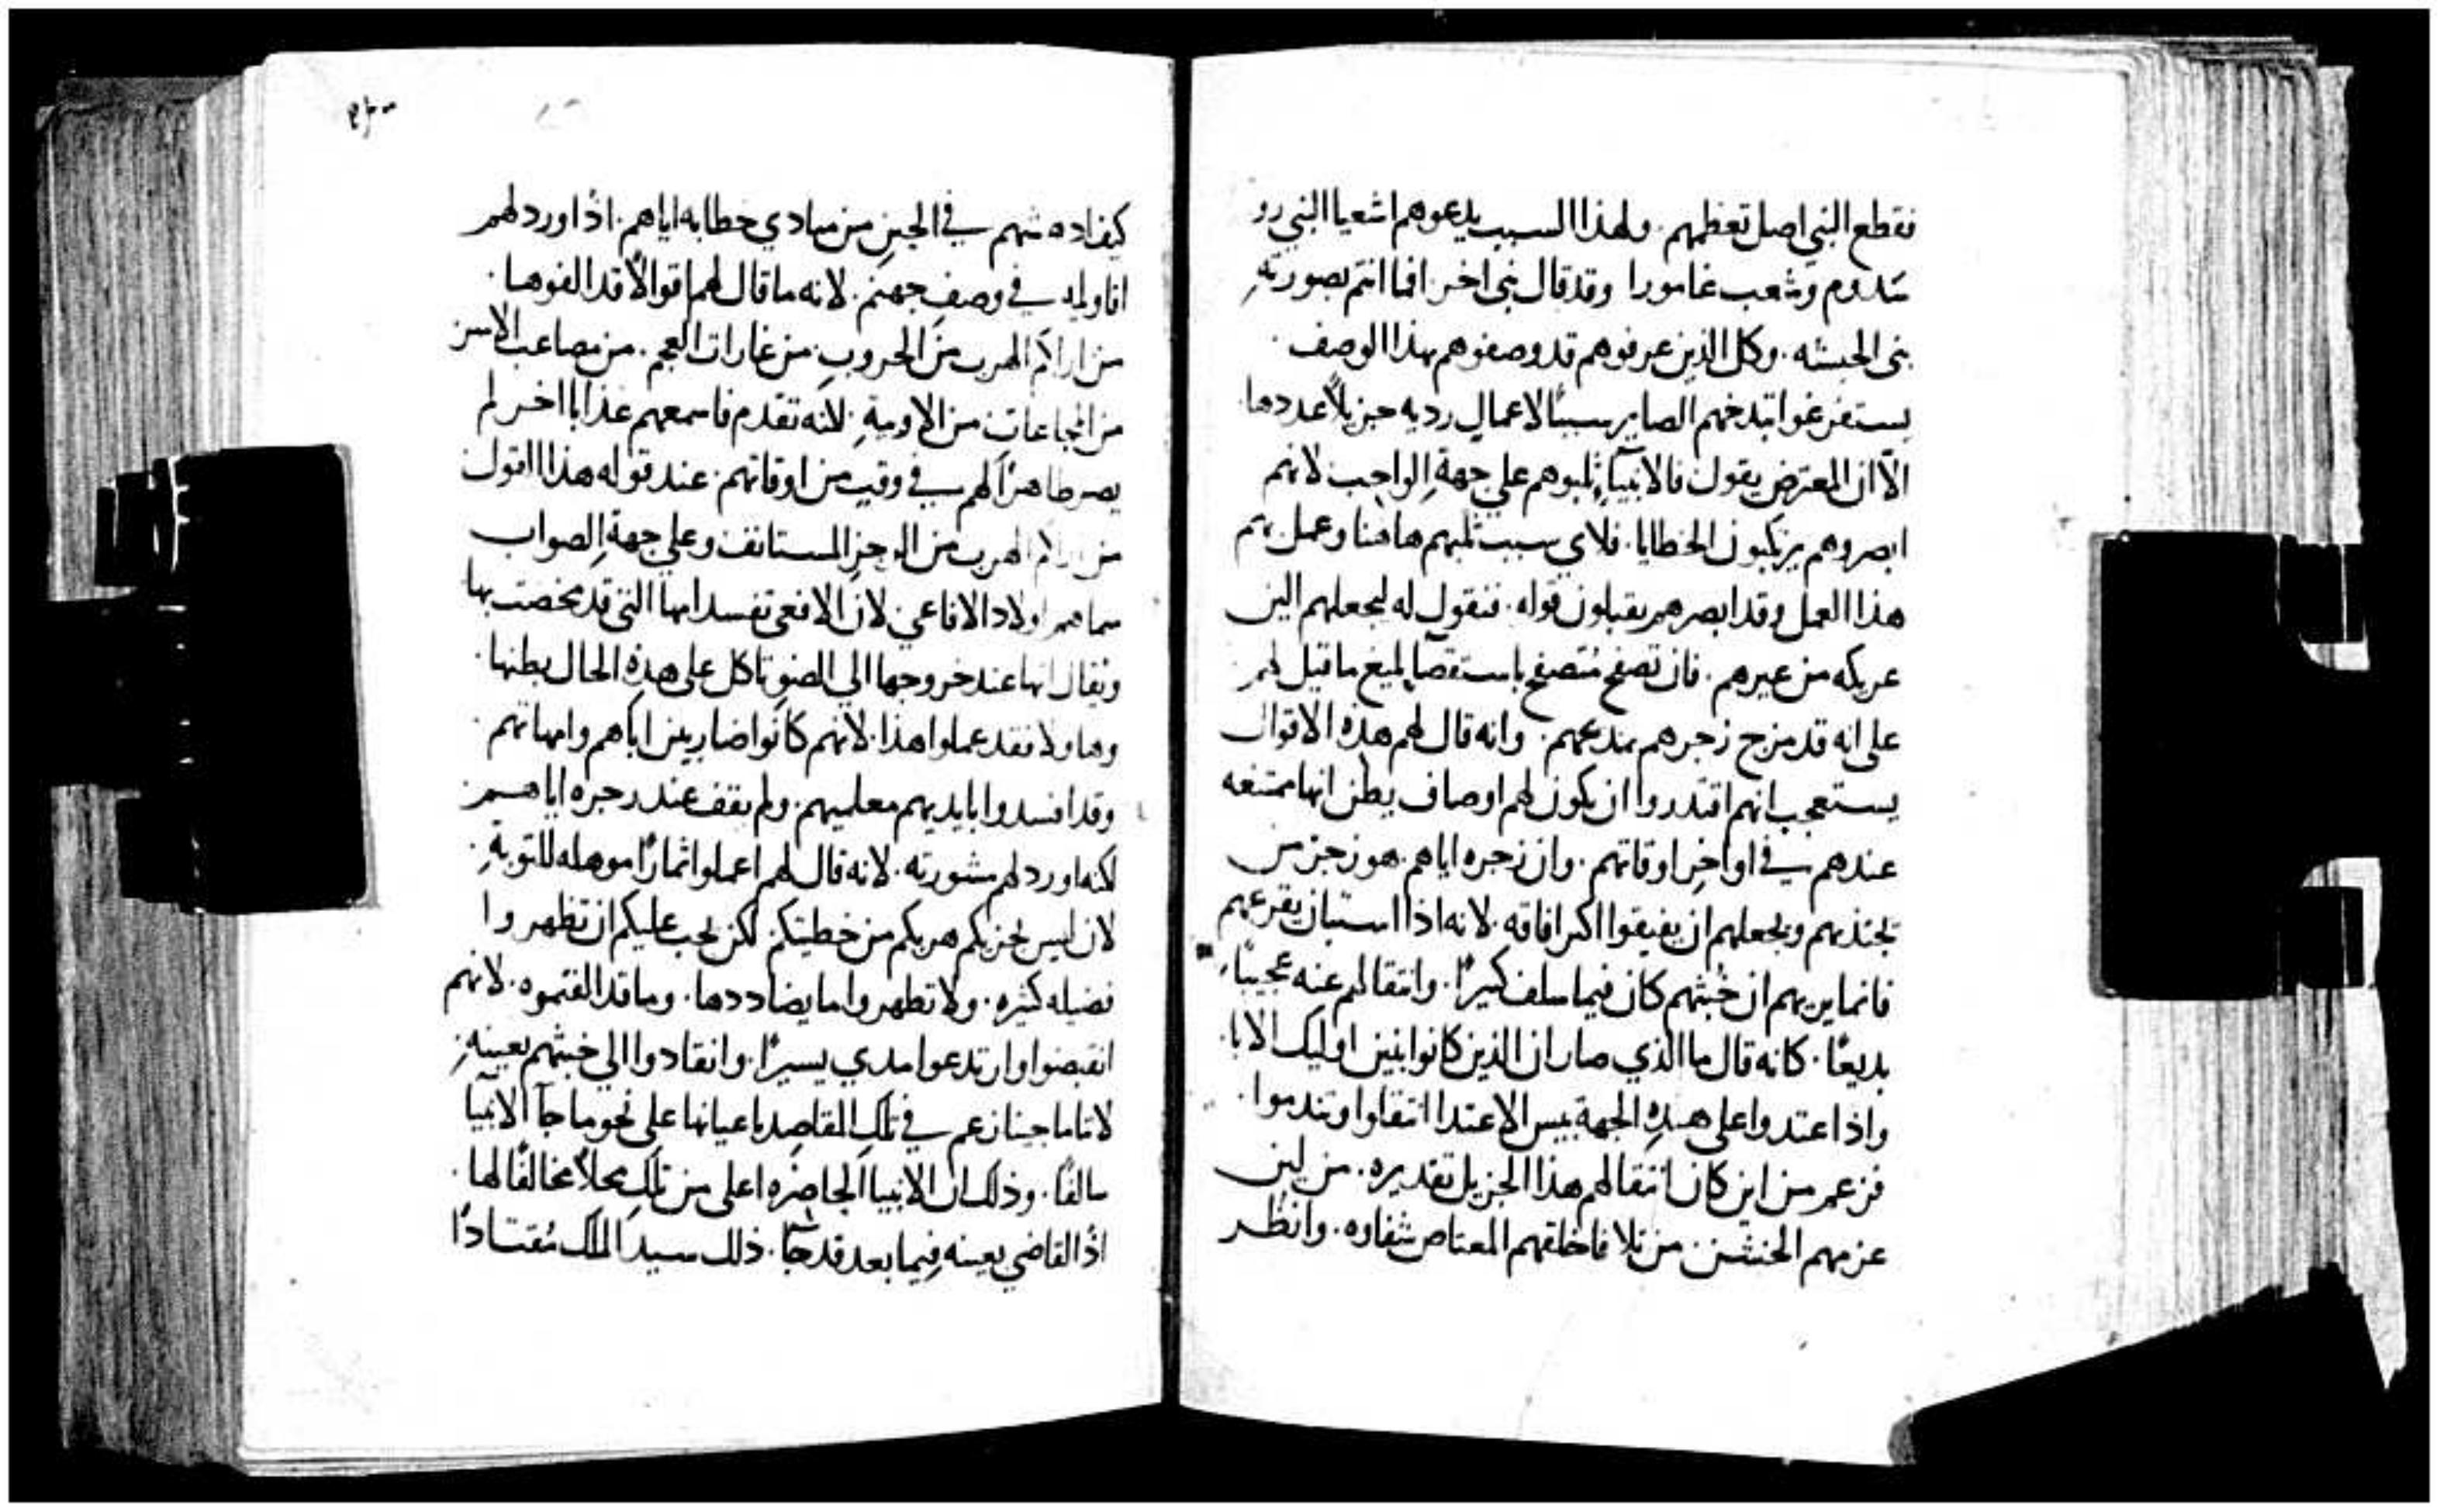 فقطع النبي اصل تعظمهم. ولهذا السبب يدعوهم اشعيا النبي رو
سدوم وشعب غامورا وقد قال نبي اخر. افما انتم بصورة
بني الحبشه. وكل الذين عرفوهم قد وصفوهم بهذا الوصف.
يستفرغوا تبذخهم الصاير سببًا لاعمال رديه جزيلاً عددها.
الّا ان المعترض يقول فالانبيآء ثلبوهم على جهةِ الواجب لانهم
ابصروهم يرتكبون الخطايا. فلاي سبب ثلبهم هاهنا وعمل بهم
هذا العمل وقد ابصرهم يقبلون قوله. فنقول له ليجعلهم الين
عريكه من غيرهم. فان تصفح متصفح باستقصآ بليغ ما قيل لهم
على انه قد مزج زجرهم بمدحهم. وانه قال لهم هذه الاقوال
يستعجب انهم اقتدروا ان يكون لهم اوصاف يظن انها ممتنعه
عندهم في اواخر اوقاتهم. وان زجره اياهم. هو زجر من
يجتذبهم ويجعلهم ان يفيقوا اكثر افاقه. لانه اذا استبان يقرعهم
فانما يريهم ان خبثهم كان فيما سلف كبيرًا. وانتقالهم عنه عجيبًا
بديعًا. كانه قال ما الذي صار ان الذين كانوا بنين اوليك الابا.
واذ اعتدوا على هذه الجهة بيس الاعتدا انتقلوا وتندموا.
فزعم من اين كان انتقالهم هذا الجزيل تقديره. من لين
عزمهم الخشن. من تلافا خلقهم المعتاص شفاوه. وانظر
كيف ادهشهم في الحين من مبادي خطابه اياهم. اذ اورد لهم
اقاويله في وصف جهنم. لانه ما قال لهم اقوالاً قد الفوها.
من اراكم الهرب من الحروب. من غارات العجم. من مصاعب الاسر
من المجاعات. من الاوبية. لانه تقدم فاسمعهم عذابا اخر لم
يصر ظاهرًا لهم في وقت من اوقاتهم. عند قوله هذا القول
من اراكم الهرب من الرجز المستانف وعلى جهة الصواب
سماهم اولاد الافاعي لان الافعى تفسد امها التي قد تمخضت بها
ويقال انها عند خروجها الى الضو تاكل على هذه الحال بطنها.
وهاولا فقد عملوا هذا. لانهم كانوا ضاربين اباهم وامهاتهم.
وقد افسدوا بايديهم معلميهم. ولم يقف عند زجره اياهم
لكنه اورد لهم مشورته. لانه قال لهم اعملوا اثمارًا موهله للتوبة.
لان ليس يجزيكم هربكم من خطيتكم لكن يجب عليكم ان تظهروا
فضيله كثيره. ولا تظهروا ما يضاددها. وما قد الفتموه. لانهم
انقبضوا وارتدعوا مدي يسيرًا. وانقادوا الى خبثهم بعينه.
لاننا ما جينا نزعم في تلك المقاصد باعيانها على نحو ما جآ الانبيا
سالفًا. وذلك ان الانبيا الحاضره اعلى من تلك محلاً مخالفًا لها.
اذ القاضي بعينه فيما بعد قد جآ. ذلك سيد الملك مُقتادًا